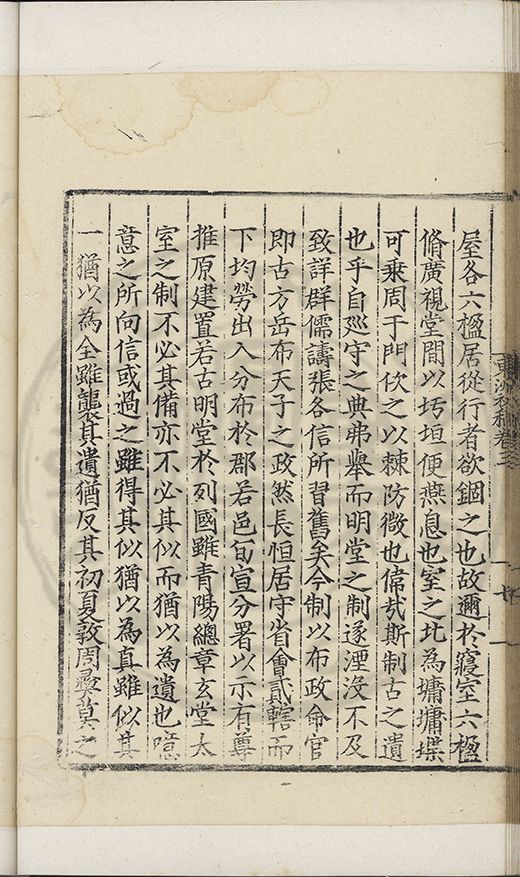 屋各六楹居從行者欲錮之也故邇於寢室六楹
脩廣視堂間以圬垣便燕息也室之北為墉墉堞
可乘周于門佽之以棘防微也偉哉斯制古之遺
也乎自廵守之典弗舉而明堂之制遂湮沒不及
致詳群儒譸張各信所習舊矣今制以布政命官
即古方岳布天子之政然長恒居守省會貳轄而
下均勞出入分布於郡若邑旬宣分署以示有尊
推原建置若古明堂於列國雖青陽總章玄堂太
室之制不必其備亦不必其似而猶以為遺也噫
意之所向信或過之雖得其似猶以為真雖似其
一猶以為全雖襲其遺猶反其初夏敦周彝莫之